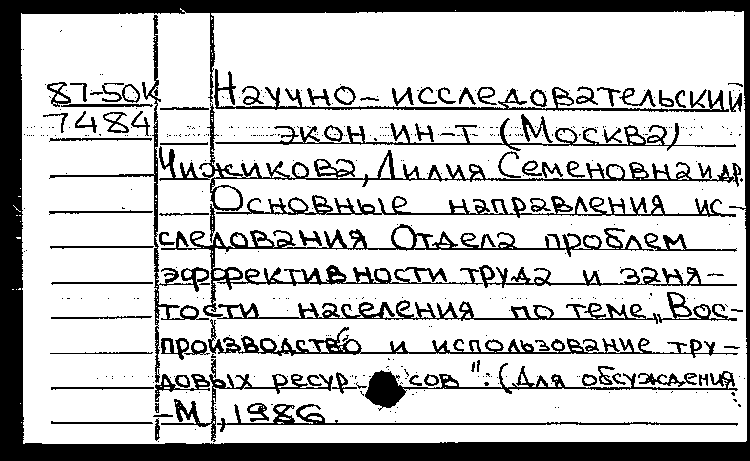 87-50К Научно-исследовательский
7484 экон. ин-т (Москва)
Чижикова, Лилия Семеновна и др.
Основные направления ис-
следования Отдела проблем
эффективности труда и заня-
тости населения по теме „Вос-
производство и использование тру-
довых ресурсов": (Для обсуждения
-М, 1986.